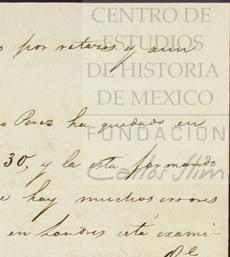 CENTRO DE
ESTUDIOS
DE HISTORIA
DE MEXICO
FUNDACIÓN
Carlos Slim
por retares y aun
Perez ha quedado en
30, y la esta formando
hay muchos errores
en Londres está exami-